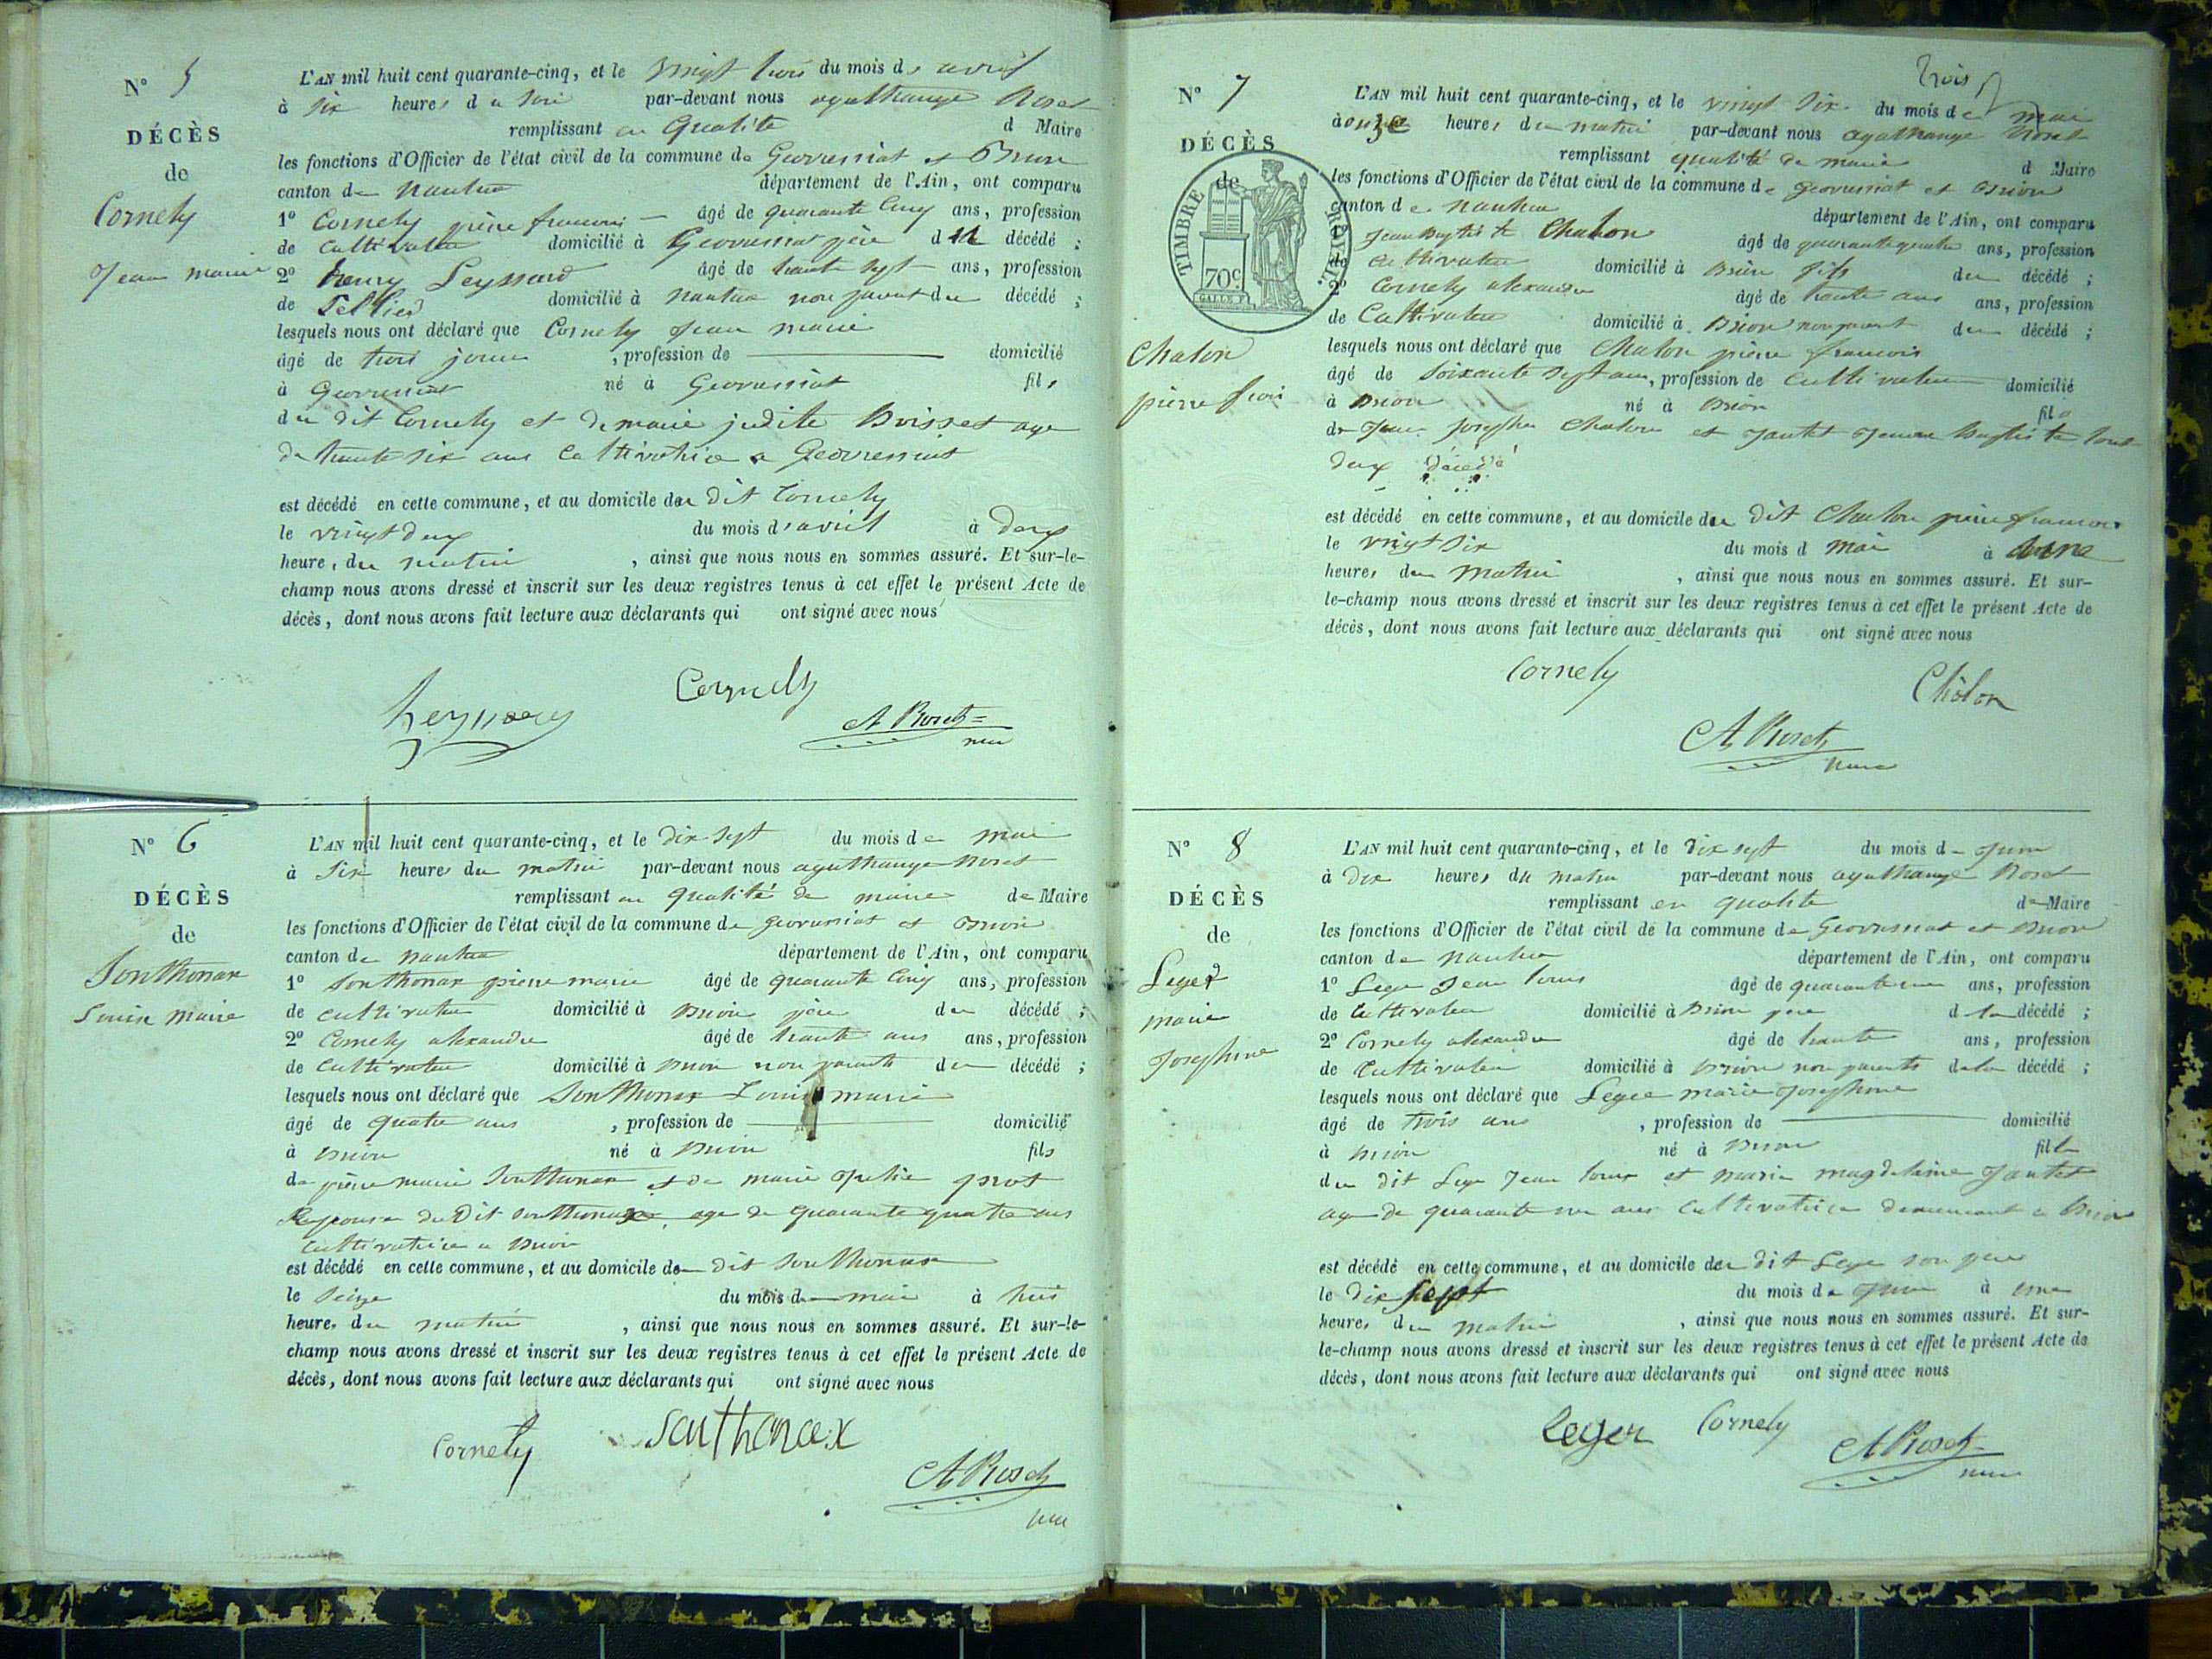 N° 5
DÉCÈS
de
Cornely
Jean marie
L'AN mil huit cent quarante-cinq, et le vingt trois du mois d avril
à six heures du soir par-devant nous agathange Roset
remplissant en qualité d Maire
les fonctions d'Officier de l'état civil de la commune de Geovressiat et Brion
canton de nantua département de l'Ain, ont comparu
1° Cornely pierre francois âgé de quarante cinq ans, profession
de cultivateur domicilié à Geovressiat père du décédé ;
2° henry Leyssard âgé de trente sept ans, profession
de Sellier domicilié à nantua non parent du décédé ;
lesquels nous ont déclaré que Cornely Jean marie
âgé de trois jours , profession de domicilié
à Geovressiat né à Geovressiat fils
du dit Cornely et de marie judite Boisset age
de trente six ans cultivatrice a Geovressiat
est décédé en cette commune, et au domicile du dit Cornely
le vingt deux du mois d'avril à deux
heures du matin , ainsi que nous nous en sommes assuré. Et sur-le-
champ nous avons dressé et inscrit sur les deux registres tenus à cet effet le présent Acte de
décès, dont nous avons fait lecture aux déclarants qui ont signé avec nous
Cornely
A Roset
N° 6
DÉCÈS
de
Sonthonax
Louis Marie
L'AN mil huit cent quarante-cinq, et le dix sept du mois de mai
à Six heures du matin par-devant nous agathange Roset
remplissant en qualité de maire de Maire
les fonctions d'Officier de l'état civil de la commune de geovressiat et Brion
canton de nantua département de l'Ain, ont comparu
1° Sonthonax pierre marie âgé de quarante cinq ans, profession
de cultivateur domicilié à Brion père du décédé ;
2° Cornely alexandre âgé de trente ans ans, profession
de cultivateur domicilié à Brion non parent du décédé ;
lesquels nous ont déclaré que Sonthonax Louis marie
âgé de quatre ans , profession de domicilié
à Brion né à Brion fils
de pierre marie Sonthonax et de marie julie prost
Epouse du Dit Sonthonax age de quarante quatre ans
cultivatrice a Brion
est décédé en cette commune, et au domicile du dit Sonthonax
le Seize du mois de mai à
heures du matin , ainsi que nous nous en sommes assuré. Et sur-le-
champ nous avons dressé et inscrit sur les deux registres tenus à cet effet le présent Acte de
décès, dont nous avons fait lecture aux déclarants qui ont signé avec nous
Cornely Sauthonax
A Roset
Trois
N° 7
DÉCÈS
de
TIMBRE ROYAL.
70c
Chalon
pierre fcois
L'AN mil huit cent quarante-cinq, et le vingt Six du mois de mai
à onze heures du matin par-devant nous agathange Roset
remplissant qualité de maire d Maire
les fonctions d'Officier de l'état civil de la commune de geovressiat et Brion
canton de nantua département de l'Ain, ont comparu
Jean Baptiste Chalon âgé de quarante quatre ans, profession
de cultivateur domicilié à Brion fils du décédé ;
2° Cornely alexandre âgé de trente ans ans, profession
de Cultivateur domicilié à Brion non parent du décédé ;
lesquels nous ont déclaré que Chalon pierre francois
âgé de soixante sept ans, profession de cultivateur domicilié
à Brion né à Brion fils
de Jean Joseph Chalon et Jantet Jeanne baptiste tout
deux décédé
est décédé en cette commune, et au domicile du Dit Chalon pierre francois
le vingt Six du mois d mai à
heures du matin , ainsi que nous nous en sommes assuré. Et sur-
le-champ nous avons dressé et inscrit sur les deux registres tenus à cet effet le présent Acte de
décès, dont nous avons fait lecture aux déclarants qui ont signé avec nous
Cornely Châlon
A Roset
N° 8
DÉCÈS
de
Leger
marie
Josephine
L'AN mil huit cent quarante-cinq, et le dix sept du mois de juin
à dix heures du matin par-devant nous agathange Roset
remplissant en qualité de Maire
les fonctions d'Officier de l'état civil de la commune de Geovressiat et Brion
canton de nantua département de l'Ain, ont comparu
1° Leger Jean louis âgé de quarante un ans, profession
de cultivateur domicilié à Brion père d la décédé ;
2° Cornely alexandre âgé de trente ans, profession
de Cultivateur domicilié à Brion non parents de la décédé ;
lesquels nous ont déclaré que Leger marie Josephine
âgé de trois ans , profession de domicilié
à Brion né à Brion fille
du dit Leger Jean louis et marie magdeleine Jantet
age de quarante un ans cultivatrice demeurant a Brion
est décédé en cette commune, et au domicile du dit Leger son pere
le dix Sept du mois de juin à une
heures du matin , ainsi que nous nous en sommes assuré. Et sur-
le-champ nous avons dressé et inscrit sur les deux registres tenus à cet effet le présent Acte de
décès, dont nous avons fait lecture aux déclarants qui ont signé avec nous
Leger Cornely
A Roset